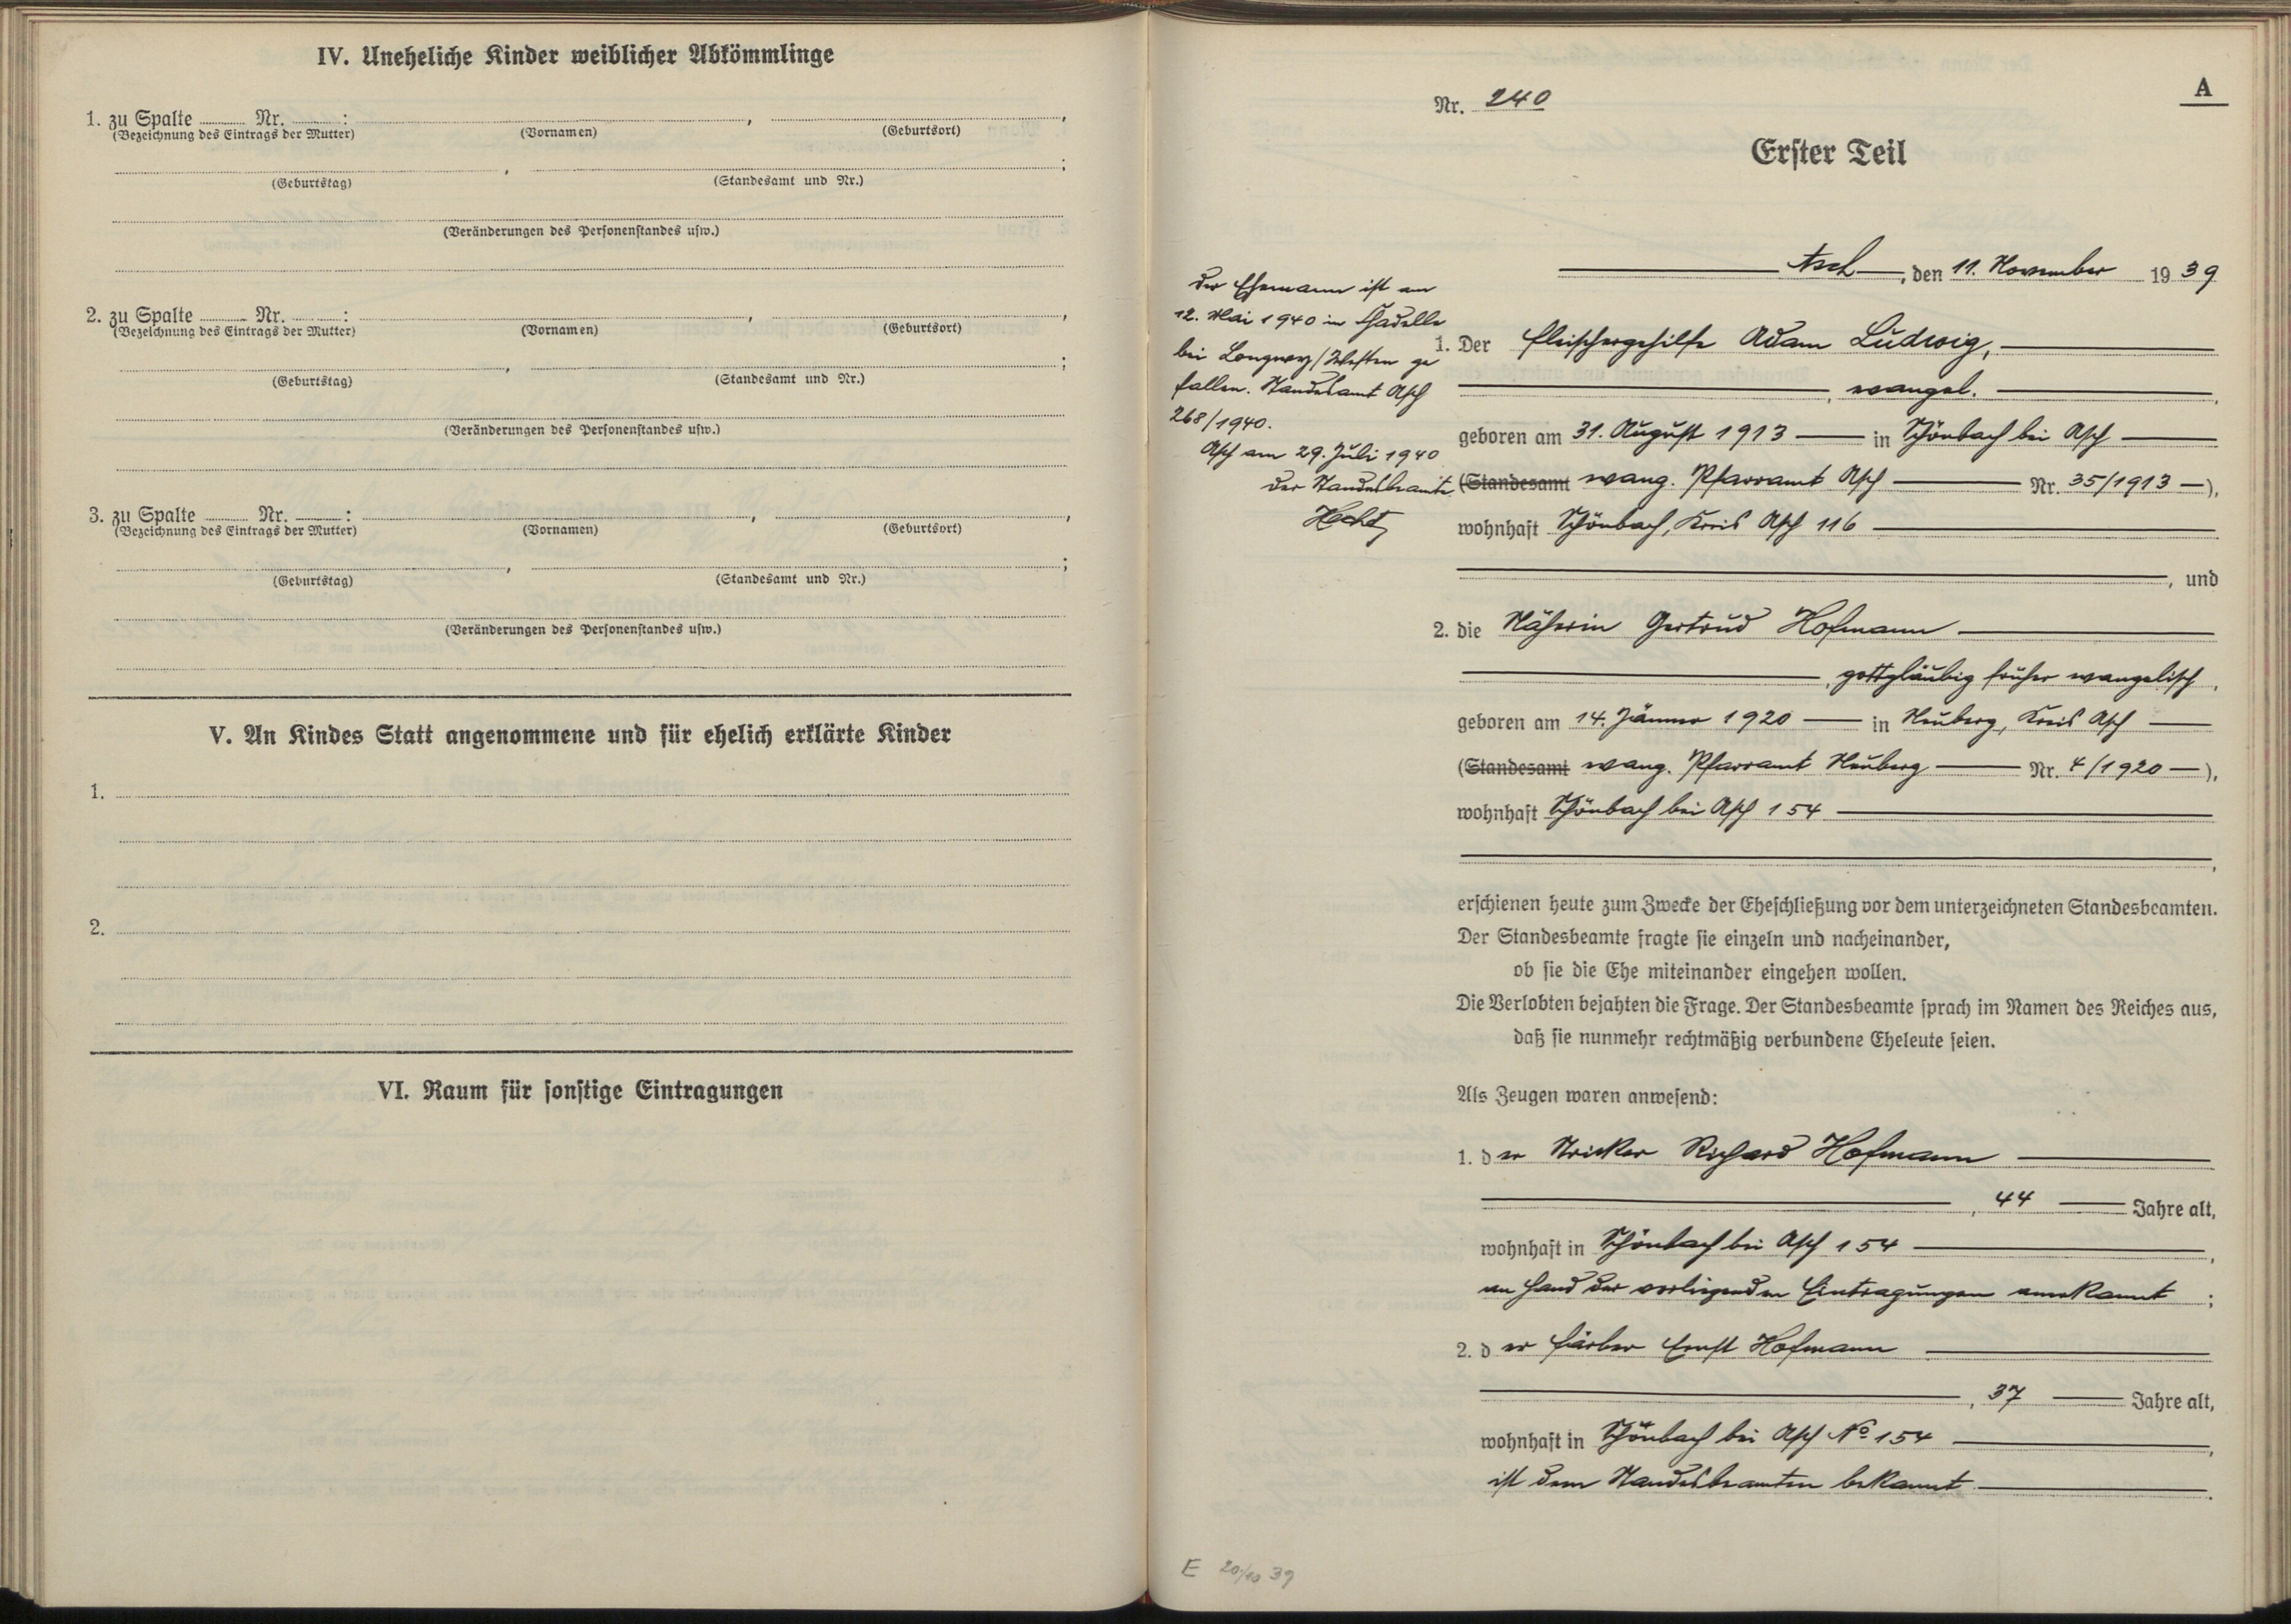 IV. Uneheliche Kinder weiblicher Abkömmlinge
1. zu Spalte ........ Nr. ........: ........, ........,
(Bezeichnung des Eintrags der Mutter) (Vornamen) (Geburtsort)
........, ........;
(Geburtstag) (Standesamt und Nr.)
(Veränderungen des Personenstandes usw.)
2. zu Spalte ........ Nr. ........: ........, ........,
(Bezeichnung des Eintrags der Mutter) (Vornamen) (Geburtsort)
........, ........;
(Geburtstag) (Standesamt und Nr.)
(Veränderungen des Personenstandes usw.)
3. zu Spalte ........ Nr. ........: ........, ........,
(Bezeichnung des Eintrags der Mutter) (Vornamen) (Geburtsort)
........, ........;
(Geburtstag) (Standesamt und Nr.)
(Veränderungen des Personenstandes usw.)
V. An Kindes Statt angenommene und für ehelich erklärte Kinder
1.
2.
VI. Raum für sonstige Eintragungen
A
Nr. 240
Erster Teil
Asch, den 11. November 1939
Der Ehemann ist am
12. Mai 1940 in
bei Longwy/Westen ge
fallen. Standesamt Asch
268/1940.
Asch am 29. Juli 1940
Der Standesbeamte
Hecht
1. Der Fleischergehilfe Adam Ludwig,
, evangel.,
geboren am 31. August 1913 in Schönbach bei Asch
(Standesamt evang. Pfarramt Asch Nr. 35/1913),
wohnhaft Schönbach, Kreis Asch 116
, und
2. die Näherin Gertrud Hofmann
, gottgläubig früher evangelisch,
geboren am 14. Jänner 1920 in Neuberg, Kreis Asch
(Standesamt evang. Pfarramt Neuberg Nr. 4/1920),
wohnhaft Schönbach bei Asch 154
,
erschienen heute zum Zwecke der Eheschließung vor dem unterzeichneten Standesbeamten.
Der Standesbeamte fragte sie einzeln und nacheinander,
ob sie die Ehe miteinander eingehen wollen.
Die Verlobten bejahten die Frage. Der Standesbeamte sprach im Namen des Reiches aus,
daß sie nunmehr rechtmäßig verbundene Eheleute seien.
Als Zeugen waren anwesend:
1. der Stricker Richard Hofmann
, 44 Jahre alt,
wohnhaft in Schönbach bei Asch 154,
an Hand der vorliegenden Eintragungen anerkannt;
2. der Färber Ernst Hofmann
, 37 Jahre alt,
wohnhaft in Schönbach bei Asch No 154,
ist dem Standesbeamten bekannt.
E 20/10 39